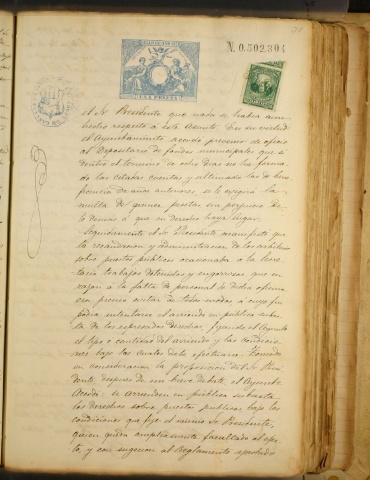 N. 0.502,304
UNA PESETA
el Sr. Presidente que nada se habia
hecho respecto á este asunto. En su virtud
el Ayuntamiento acordó prevenir de oficio
al Depositario de fondos municipales que si
dentro el termino de ocho dias no ha forma-
do las citadas cuentas y ultimado las de bene-
ficencia de años anteriores, se le exigirá la
multa de quince pesetas sin perjuicio de
lo demás á que en derecho haya lugar.
Seguidamente el Sr. Presidente manifestó que
la recaudacion y administracion de los arbitrios
sobre puestos públicos ocasionaba á la Secre-
taria trabajos detenidos y engorrosos que en
razon á la falta de personal de dicha oficina
era preciso evitar de todos modos á cuyo fin
podria intentarse el arriendo en pública subas-
ta de los expresados derechos, fijando el Ayunto
el tipo ó cantidad del arriendo y las condicio-
nes bajo las cuales debe efectuarse. Tomada
en consideracion la proposicion del Sr. Presi-
dente despues de un breve debate, el Ayunto
Acordó: se arrienden en pública subasta
los derechos sobre puestos públicos bajo las
condiciones que fije el mismo Sr. Presidente,
quien queda ampliamente facultado al efec-
to, y con sugecion al Reglamento aprobado